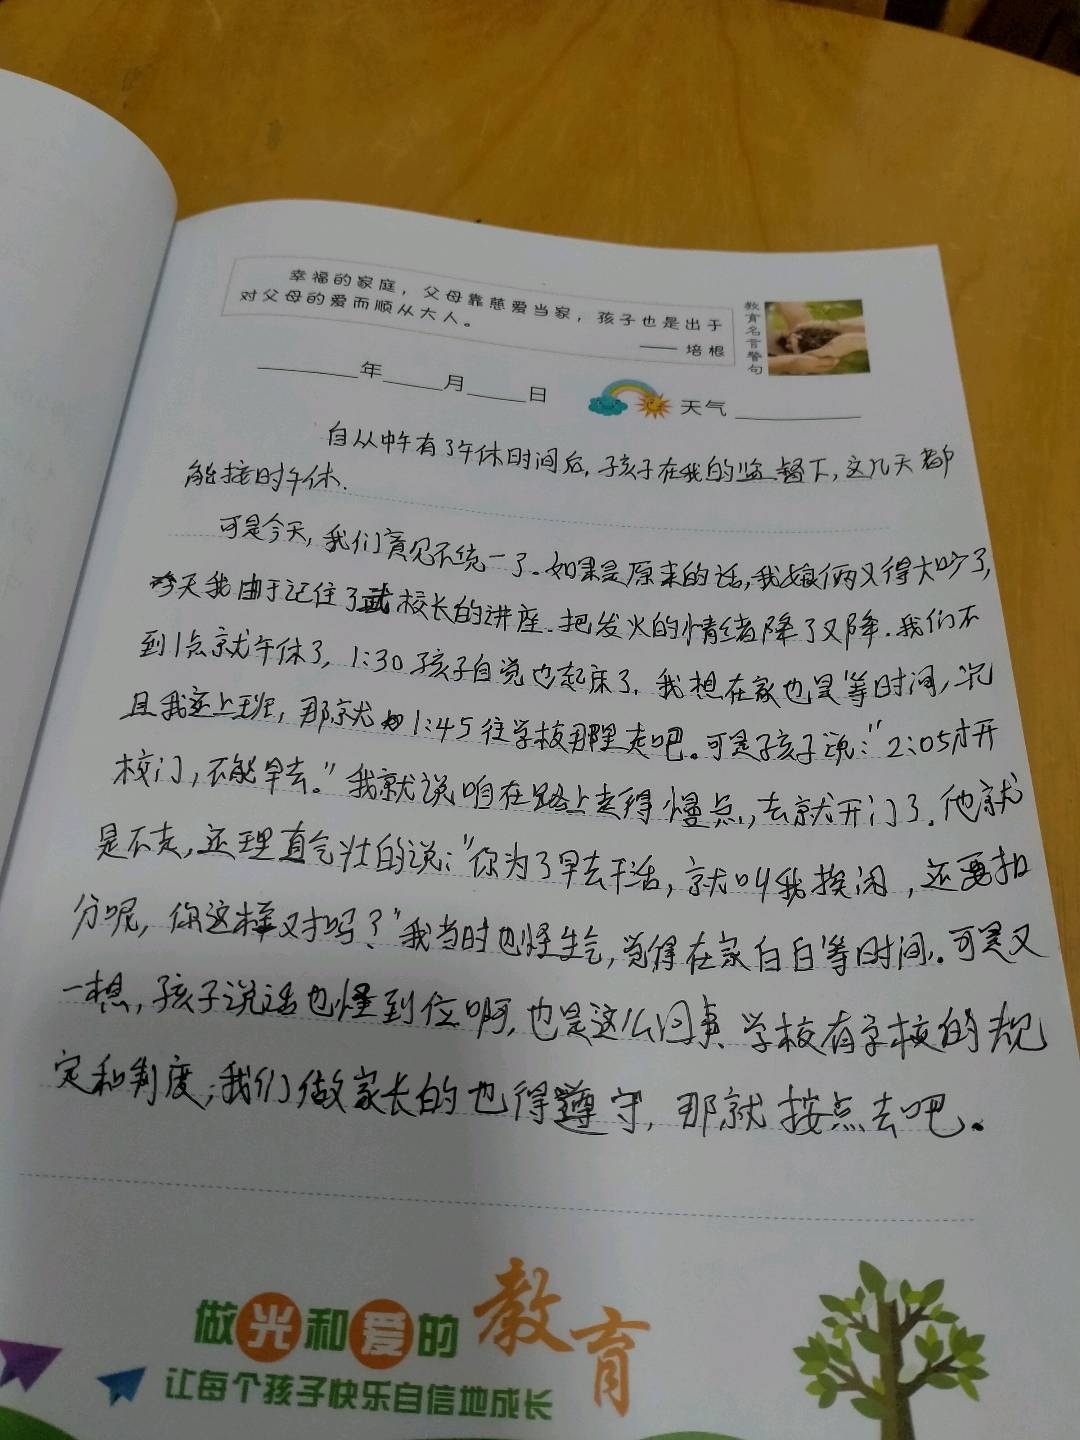 幸福的家庭，父母靠慈爱当家，孩子也是出于
对父母的爱而顺从大人。
—— 培根
教育名言警句
年 月 日 天气
自从中午有了午休时间后，孩子在我的监督下，这几天都
能按时午休.
可是今天，我们意见不统一了。如果是原来的话，我娘俩又得大吵了，
今天我由于记住了武校长的讲座.把发火的情绪降了又降.我们不
到1点就午休了，1:30孩子自觉也起床了.我想在家也是等时间，况
且我还上班，那就1:45往学校那里走吧。可是孩子说："2:05才开
校门，不能早去。"我就说咱在路上走得慢点，去就开门了.他就
是不走，还理直气壮的说："你为了早去干活，就叫我挨闲，还要扣
分呢，你这样对吗？"我当时也怪生气，觉得在家白白等时间.可是又
一想，孩子说话也怪到位啊，也是这么回事、学校有学校的规
定和制度，我们做家长的也得遵守，那就按点去吧。
做光和爱的教育
让每个孩子快乐自信地成长